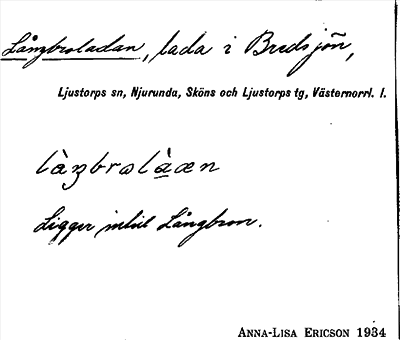 Långbroladan, lada i Bredsjön,
Ljustorps sn, Njurunda, Sköns och Ljustorps tg, Västernorrl. l.
làŋbrolàæn
Ligger intill Långbron.
ANNA-LISA ERICSON 1934